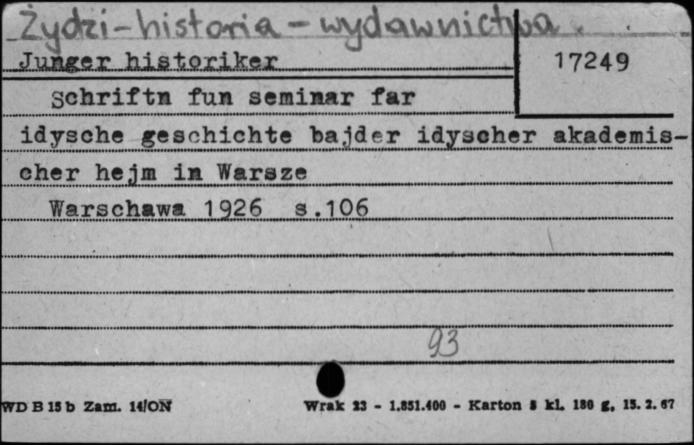 Żydzi-historia - wydawnictwa.
Junger historiker
17249
Schriftn fun seminar far
idysche geschichte bajder idyscher akademis-
cher hejm in Warsze
Warschawa 1926 s.106
93
WD B 15 b Zam. 14/ON
Wrak 23 - 1.851.400 - Karton 5 kl. 180 g. 15. 2. 67